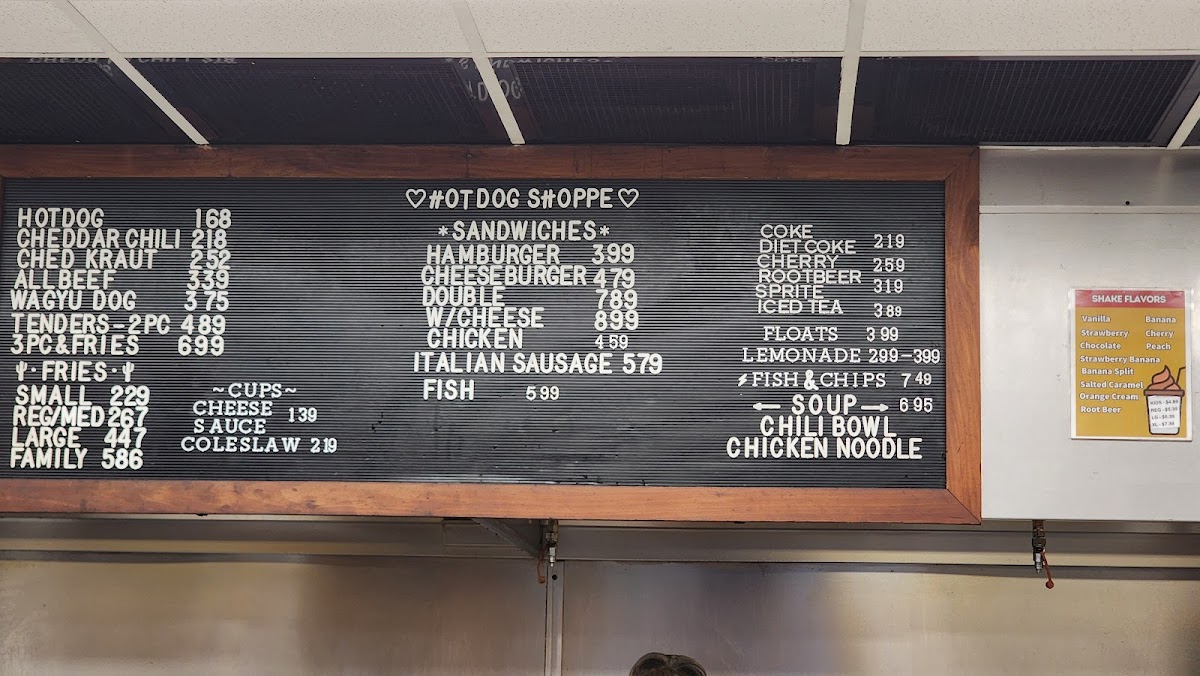 ♡HOTDOG SHOPPE♡
HOTDOG 168
CHEDDAR CHILI 218
CHED KRAUT 252
ALL BEEF 339
WAGYU DOG 375
TENDERS-2PC 489
3PC&FRIES 699
FRIES
SMALL 229
REG/MED 267
LARGE 447
FAMILY 586
~CUPS~
CHEESE 139
SAUCE
COLESLAW 219
*SANDWICHES*
HAMBURGER 399
CHEESEBURGER 479
DOUBLE 789
W/CHEESE 899
CHICKEN 459
ITALIAN SAUSAGE 579
FISH 599
COKE
DIET COKE 219
CHERRY
ROOTBEER 259
SPRITE 319
ICED TEA 389
FLOATS 399
LEMONADE 299-399
FISH & CHIPS 749
← SOUP → 695
CHILI BOWL
CHICKEN NOODLE
SHAKE FLAVORS
Vanilla Banana
Strawberry Cherry
Chocolate Peach
Strawberry Banana
Banana Split
Salted Caramel
Orange Cream
Root Beer